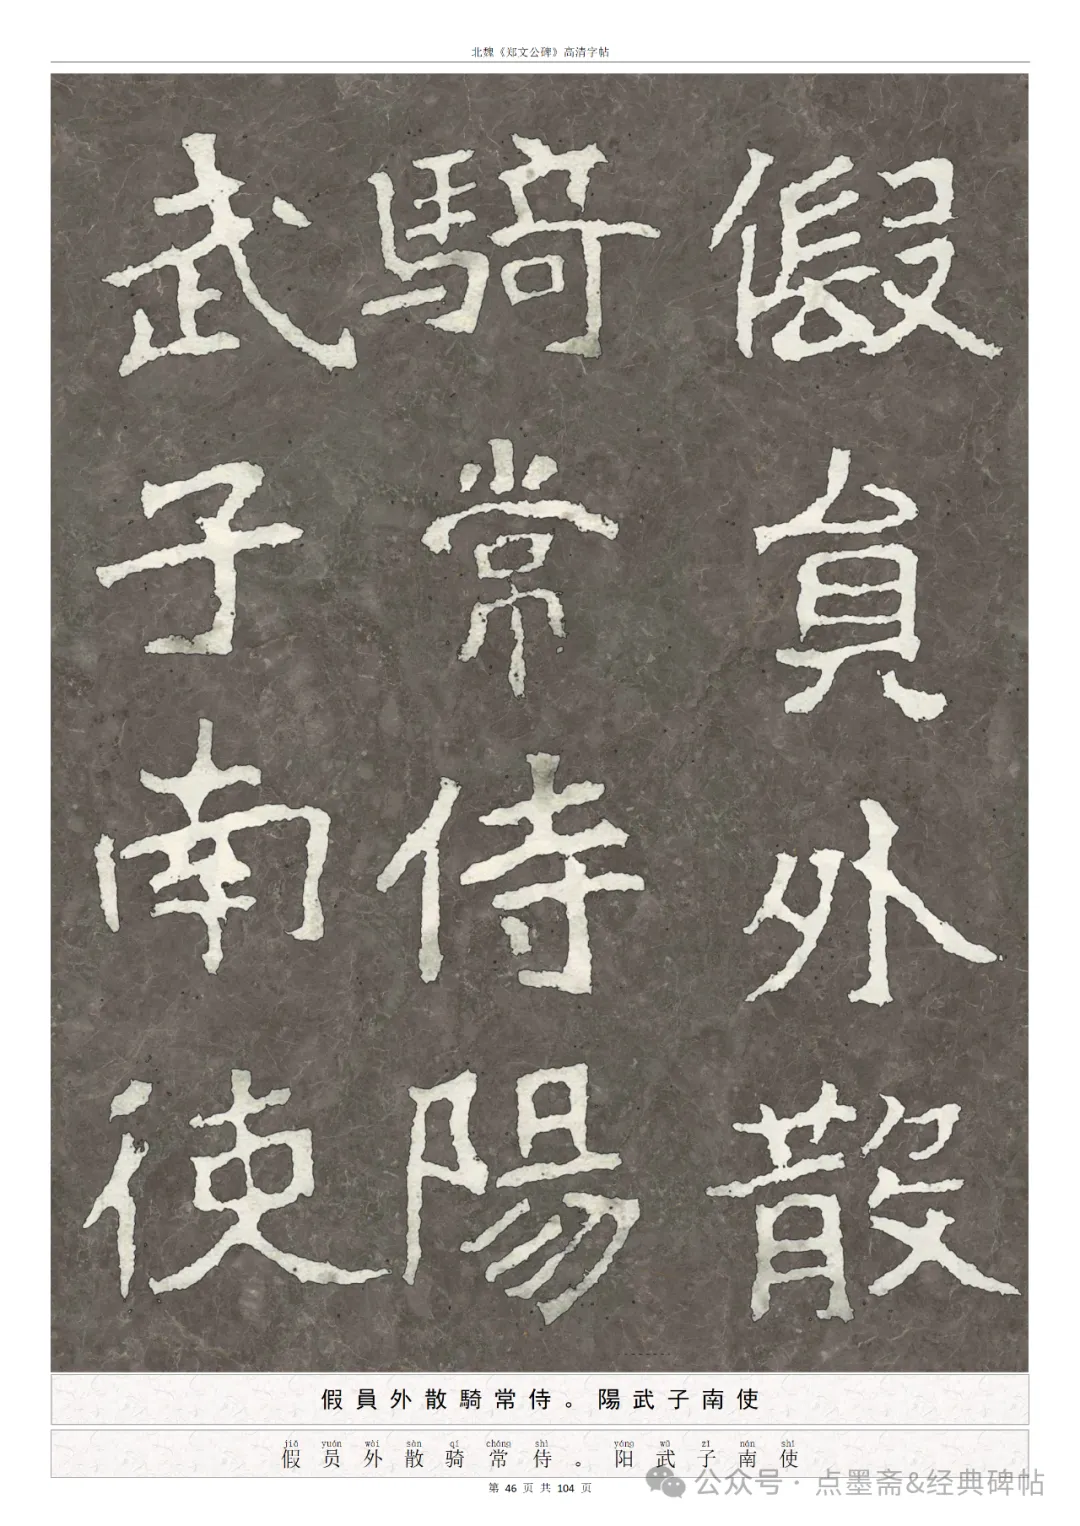 北魏《郑文公碑》高清字帖
假員外散
騎常侍陽
武子南使
假員外散騎常侍。陽武子南使
jiǎ yuán wài sàn qí cháng shì yáng wǔ zǐ nán shǐ
假员外散骑常侍。阳武子南使
第 46 页 共 104 页
公众号·点墨斋&经典碑帖